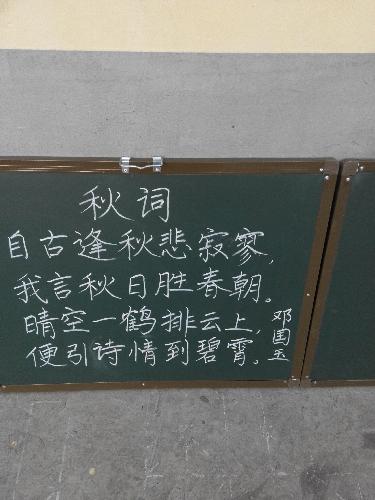 秋词
自古逢秋悲寂寥,
我言秋日胜春朝。
晴空一鹤排云上,
便引诗情到碧霄。
邓国玉